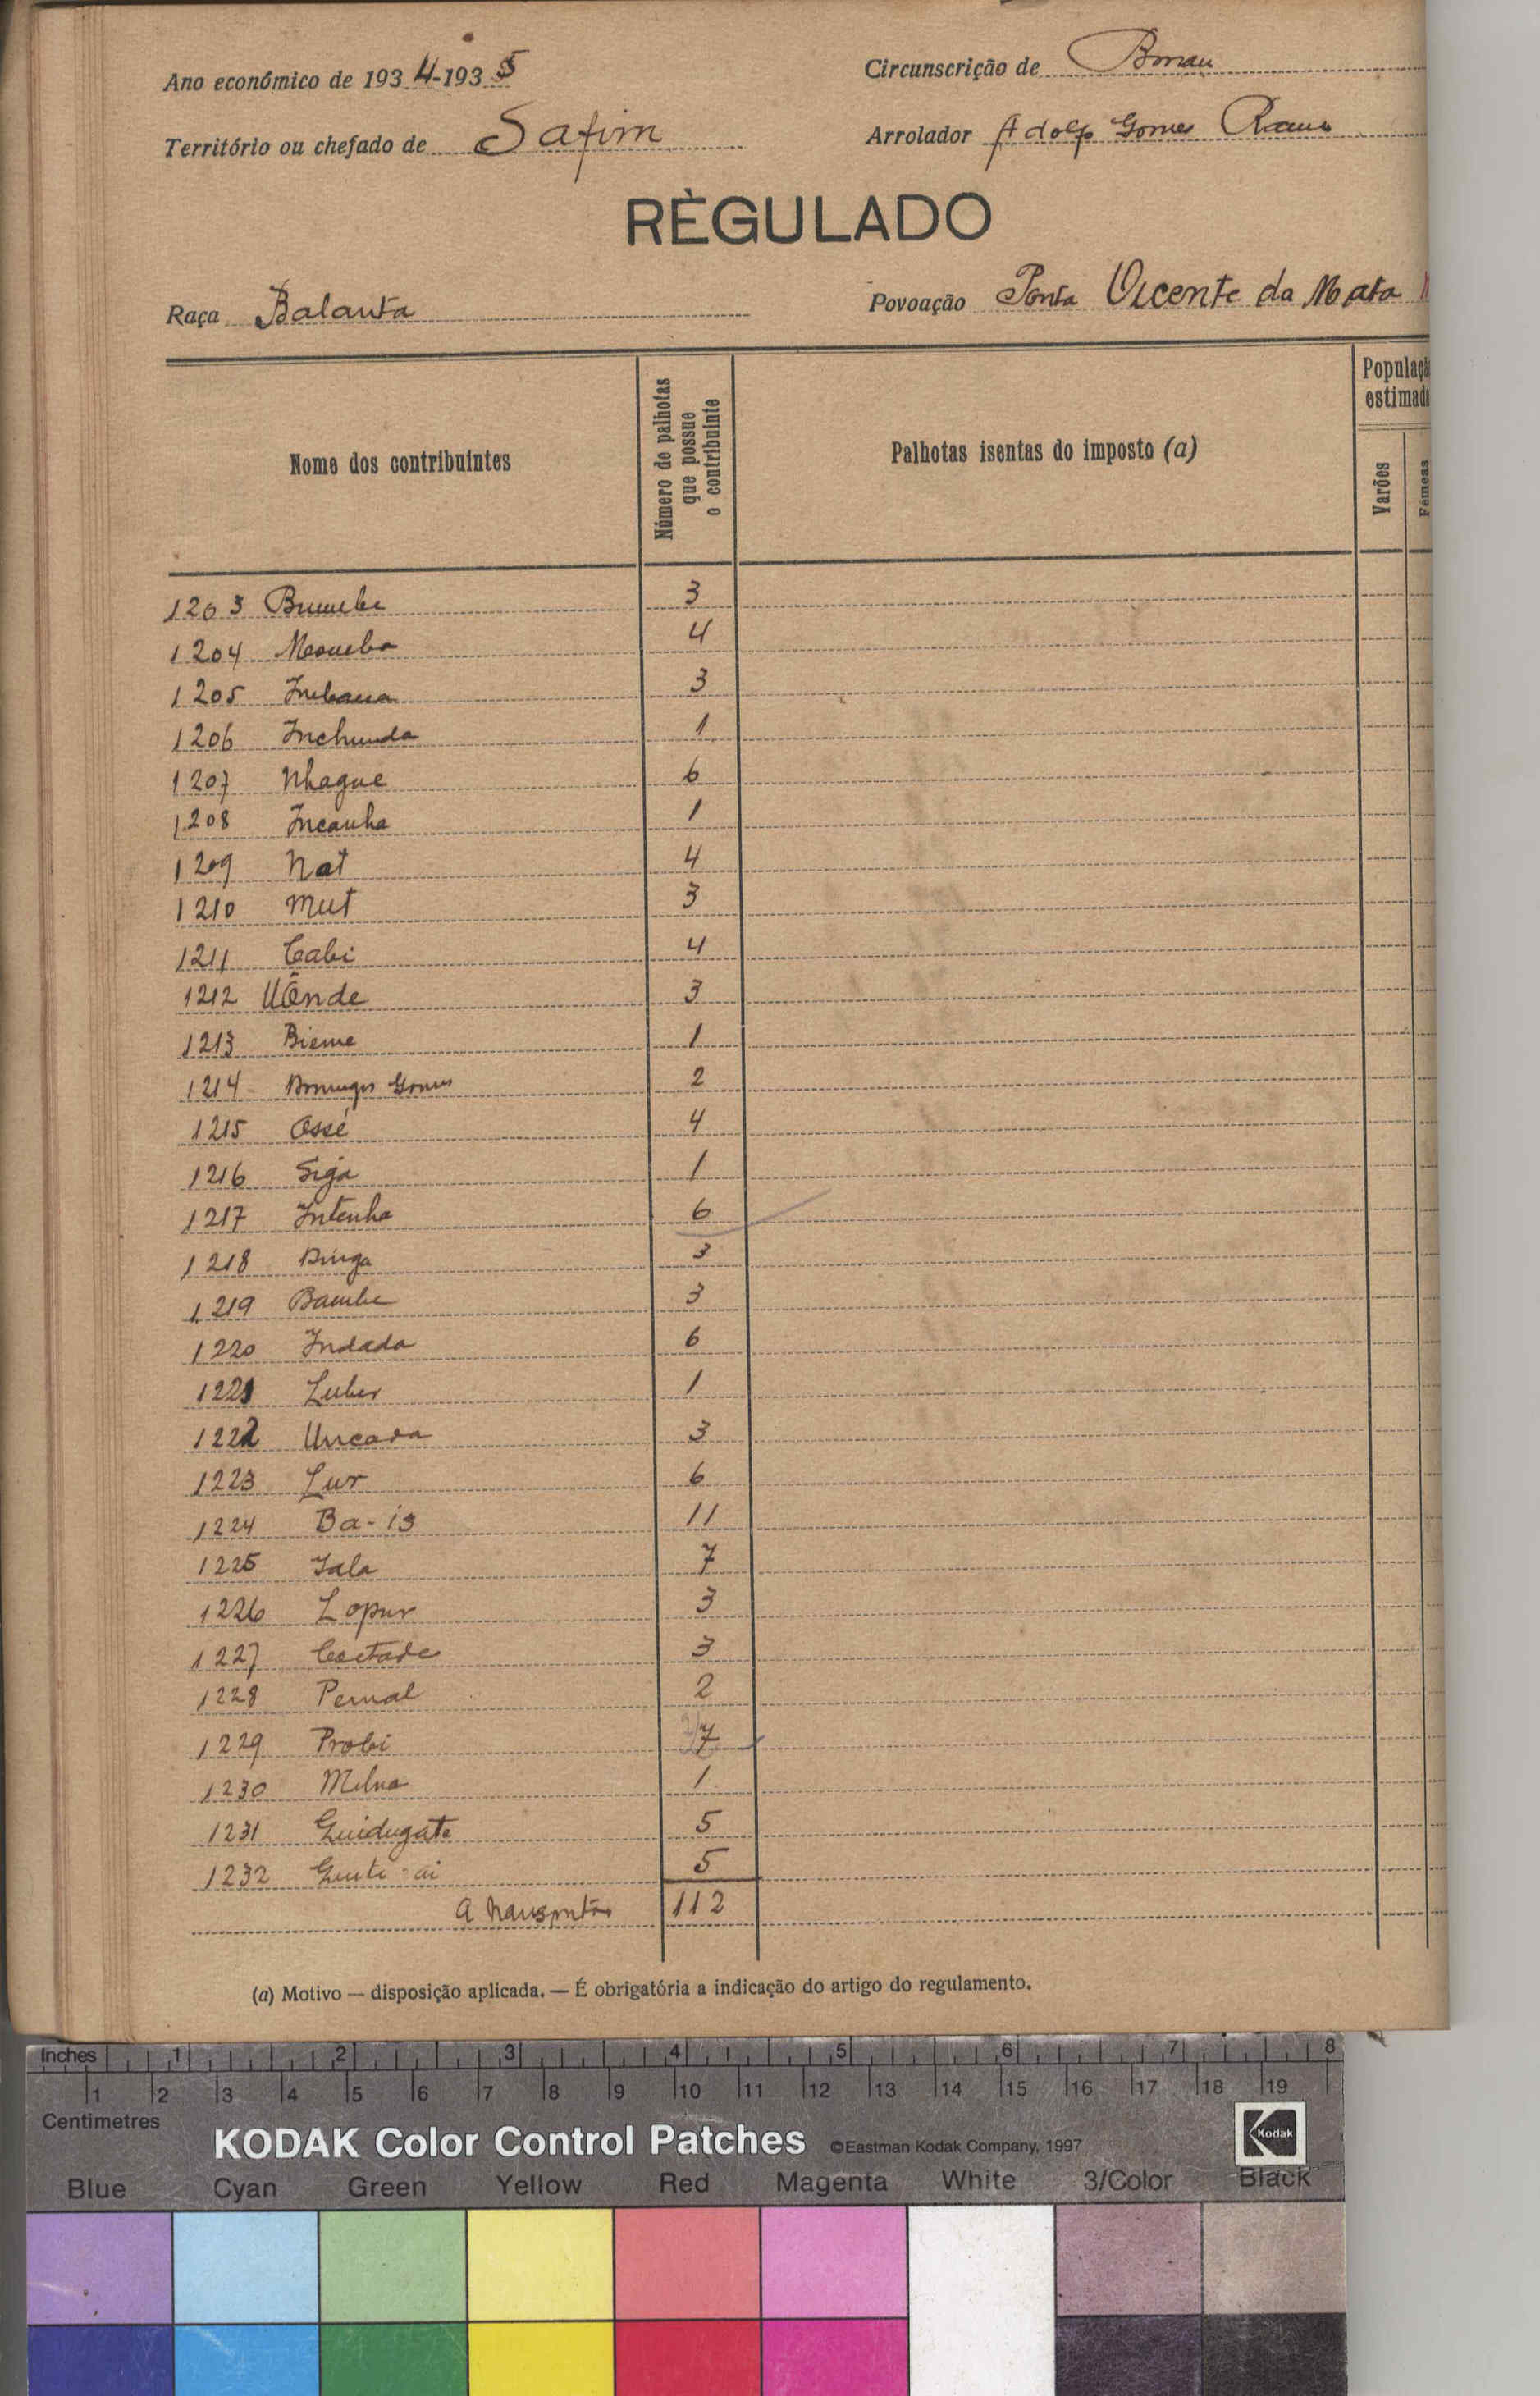 Ano económico de 1934-1935
Circunscrição de Bissau
Território ou chefado de Safim
Arrolador Adolfo Gomes Ramos
RÈGULADO
Raça Balanta
Povoação Ponta Vicente da Mata
Nome dos contribuintes
Número de palhotas que possue o contribuinte
Palhotas isentas do imposto (a)
Populaçã
estimada
Varões
Fémeas
1203 3
1204 4
1205 3
1206 Inchunda 1
1207 Nhague 6
1208 Incanha 1
1209 Nat 4
1210 Mut 3
1211 Cabi 4
1212 Uônde 3
1213 Bieme 1
1214 Domingos Gomes 2
1215 Ossé 4
1216 Siga 1
1217 Intenha 6
1218 Dinga 3
1219 Bambe 3
1220 Indada 6
1221 Luber 1
1222 Uncada 3
1223 Lur 6
1224 Ba-is 11
1225 Iala 7
1226 Lopur 3
1227 3
1228 Pernal 2
1229 Probi 7
1230 Melna 1
1231 Guidugate 5
1232 5
A transportar 112
(a) Motivo — disposição aplicada. — É obrigatória a indicação do artigo do regulamento.
Inches 1 2 3 4 5 6 7 8
1 2 3 4 5 6 7 8 9 10 11 12 13 14 15 16 17 18 19
Centimetres
KODAK Color Control Patches ©Eastman Kodak Company, 1997 Kodak
Blue Cyan Green Yellow Red Magenta White 3/Color Black